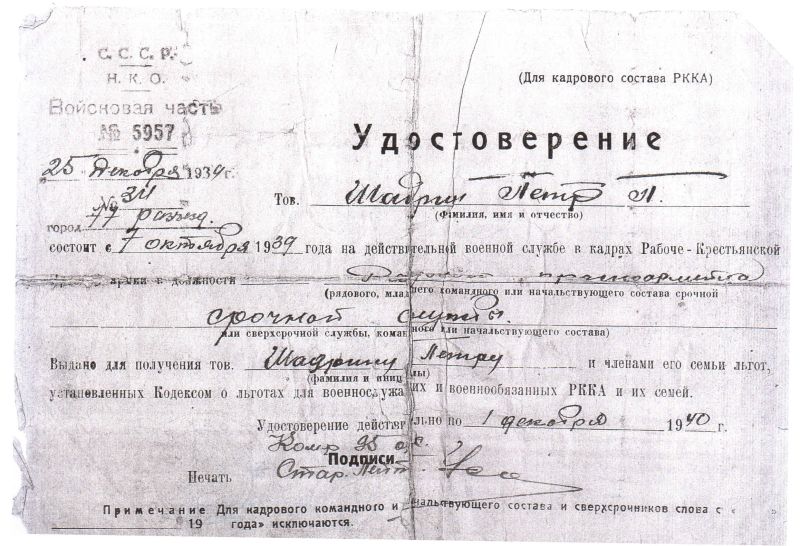 С. С. С. Р.
Н. К. О.
Войсковая часть
№ 5957
25 декабря 1939 г.
№ 34
город 77 разъезд.
(Для кадрового состава РККА)
Удостоверение
Тов. Шадрин Петр П.
(Фамилия, имя и отчество)
состоит с 7 октября 1939 года на действительной военной службе в кадрах Рабоче-Крестьянской
армии в должности красноармейца
(рядового, младшего командного или начальствующего состава срочной
срочной службы.
или сверхсрочной службы, командного или начальствующего состава)
Выдано для получения тов. Шадрину Петру и членами его семьи льгот,
(фамилия и инициалы)
установленных Кодексом о льготах для военнослужащих и военнообязанных РККА и их семей.
Удостоверение действительно по 1 декабря 1940 г.
Подписи
Печать Стар. Лейт.
Примечание Для кадрового командного и начальствующего состава и сверхсрочников слова «с
19 года» исключаются.